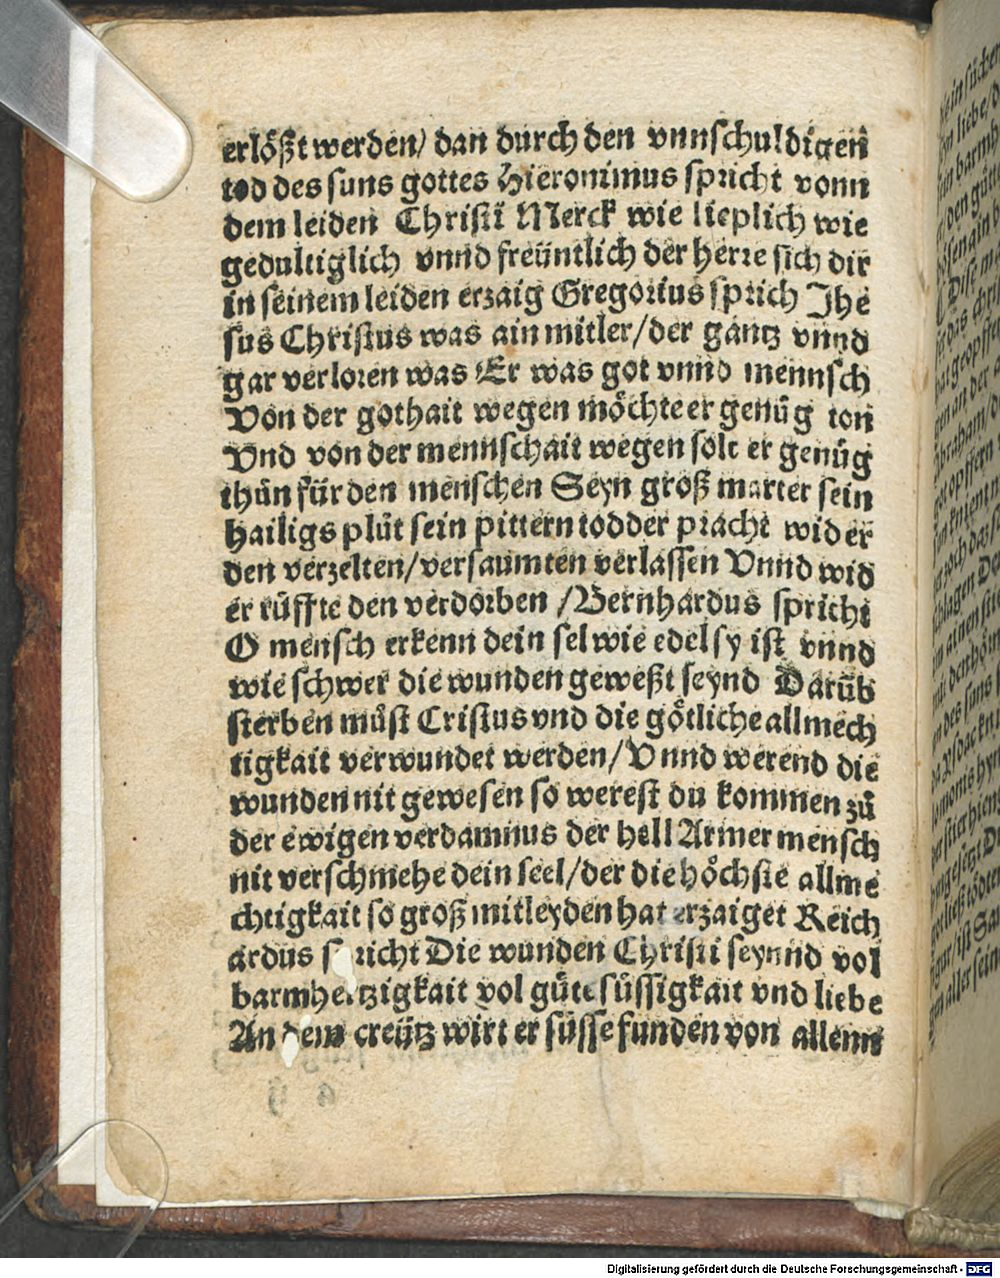 erlößt werden/ dan durch den vnnschuldigen
tod des suns gottes Hieronimus spricht vonn
dem leiden Christi Merck wie lieplich wie
gedultiglich vnnd freüntlich der herre sich dir
in seinem leiden erzaig Gregorius sprich Jhe
sus Christus was ain mitler/der gantz vnnd
gar verloren was Er was got vnnd mennsch
Von der gothait wegen möchte er genůg ton
Vnd von der mennschait wegen solt er genůg
thůn für den menschen Seyn groß marter sein
hailigs plůt sein pittern tod der pracht wider
den verzelten/versaumten verlassen Vnnd wid
er rüffte den verdorben /Bernhardus spricht
O mensch erkenn dein sel wie edel sy ist vnnd
wie schwer die wunden geweßt seynd Darüb
sterben můst Cristus vnd die götliche allmech
tigkait verwundet werden/Vnnd werend die
wunden nit gewesen so werest du kommen zů
der ewigen verdamnus der hell Armer mensch
nit verschmehe dein seel/der die höchste allme
chtigkait so groß mitleyden hat erzaiget Reich
ardus spricht Die wunden Christi seynnd vol
barmhertzigkait vol güte süssigkait vnd liebe
An dem creütz wirt er süsse funden von allenn
Digitalisierung gefördert durch die Deutsche Forschungsgemeinschaft - DFG